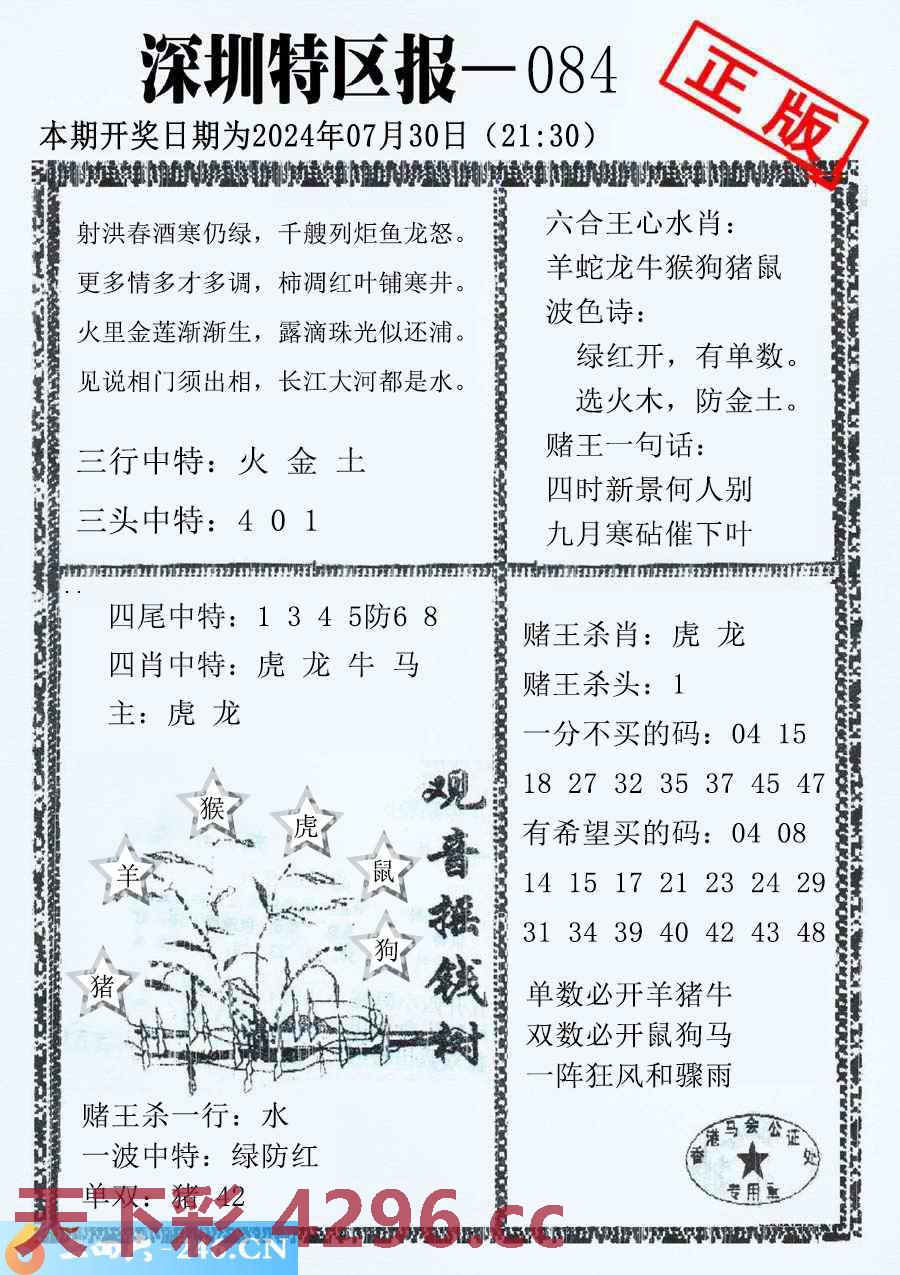 深圳特区报—084
正版
本期开奖日期为2024年07月30日（21:30）
射洪春酒寒仍绿，千艘列炬鱼龙怒。
更多情多才多调，柿凋红叶铺寒井。
火里金莲渐渐生，露滴珠光似还浦。
见说相门须出相，长江大河都是水。
三行中特：火 金 土
三头中特：4 0 1
六合王心水肖：
羊蛇龙牛猴狗猪鼠
波色诗：
绿红开，有单数。
选火木，防金土。
赌王一句话：
四时新景何人别
九月寒砧催下叶
四尾中特：1 3 4 5防6 8
四肖中特：虎 龙 牛 马
主：虎 龙
猴
虎
羊
鼠
狗
猪
观音摇钱树
赌王杀一行：水
一波中特：绿防红
单双：猪 42
赌王杀肖：虎 龙
赌王杀头：1
一分不买的码：04 15
18 27 32 35 37 45 47
有希望买的码：04 08
14 15 17 21 23 24 29
31 34 39 40 42 43 48
单数必开羊猪牛
双数必开鼠狗马
一阵狂风和骤雨
香港马会公证处
专用章
天下彩 4296.cc
-246.CN